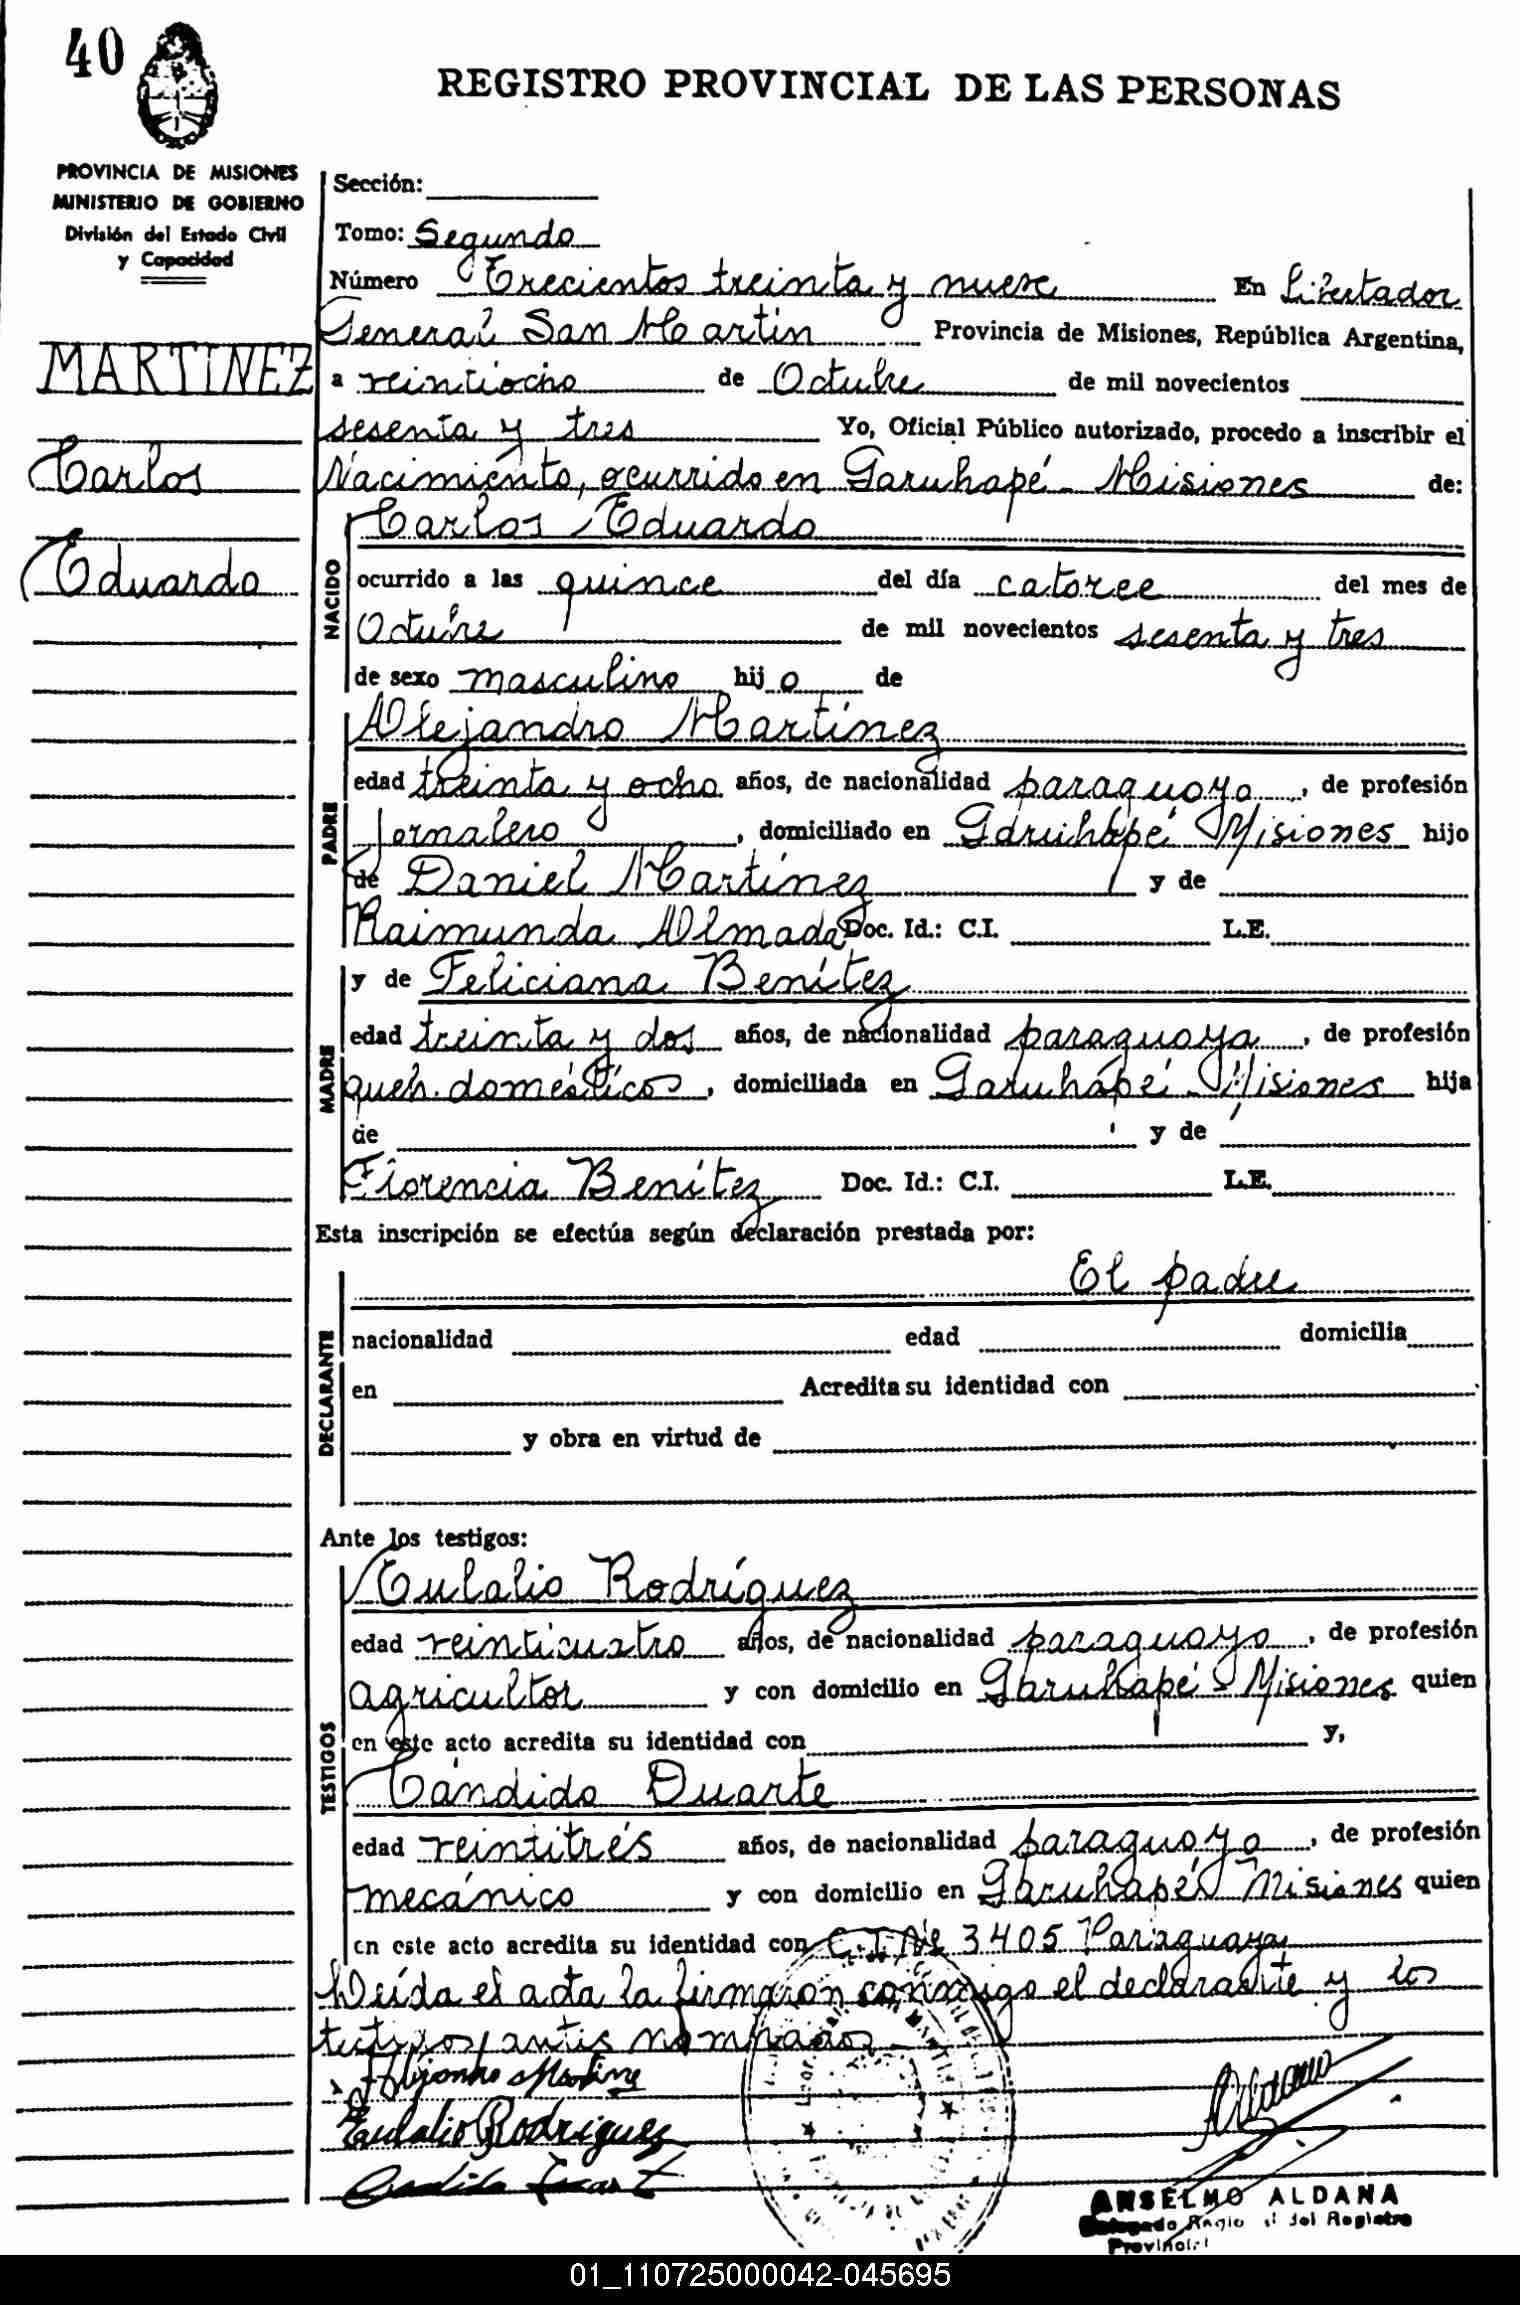 40
REGISTRO PROVINCIAL DE LAS PERSONAS
PROVINCIA DE MISIONES
MINISTERIO DE GOBIERNO
División del Estado Civil
y Capacidad
MARTINEZ
Carlos
Eduardo
Sección:
Tomo: Segundo
Número Trecientos treinta y nueve En Libertador
General San Martín Provincia de Misiones, República Argentina,
a veintiocho de Octubre de mil novecientos
sesenta y tres Yo, Oficial Público autorizado, procedo a inscribir el
Nacimiento, ocurrido en Garuhapé - Misiones de:
NACIDO
Carlos Eduardo
ocurrido a las quince del día catorce del mes de
Octubre de mil novecientos sesenta y tres
de sexo masculino hijo de
PADRE
Alejandro Martínez
edad treinta y ocho años, de nacionalidad paraguayo, de profesión
jornalero, domiciliado en Garuhapé Misiones hijo
de Daniel Martínez y de
Raimunda Almada Doc. Id.: C.I. L.E.
MADRE
y de Feliciana Benítez
edad treinta y dos años, de nacionalidad paraguaya, de profesión
queh. domésticos, domiciliada en Garuhápé - Misiones hija
de y de
Florencia Benítez Doc. Id.: C.I. L.E.
Esta inscripción se efectúa según declaración prestada por:
DECLARANTE
El padre
nacionalidad edad domicilia
en Acredita su identidad con
y obra en virtud de
Ante los testigos:
TESTIGOS
Eulalio Rodríguez
edad veinticuatro años, de nacionalidad paraguayo, de profesión
agricultor y con domicilio en Garuhapé - Misiones quien
en este acto acredita su identidad con y,
Cándido Duarte
edad veintitrés años, de nacionalidad paraguayo, de profesión
mecánico y con domicilio en Garuhapé Misiones quien
en este acto acredita su identidad con C.I.Nº 3405 Paraguaya
Leída el acta la firmaron conmigo el declarante y los
testigos antes nombrados
Alejandro Martínez
Eulalio Rodriguez
ANSELMO ALDANA
Delegado Regional del Registro
Provincial
01_110725000042-045695